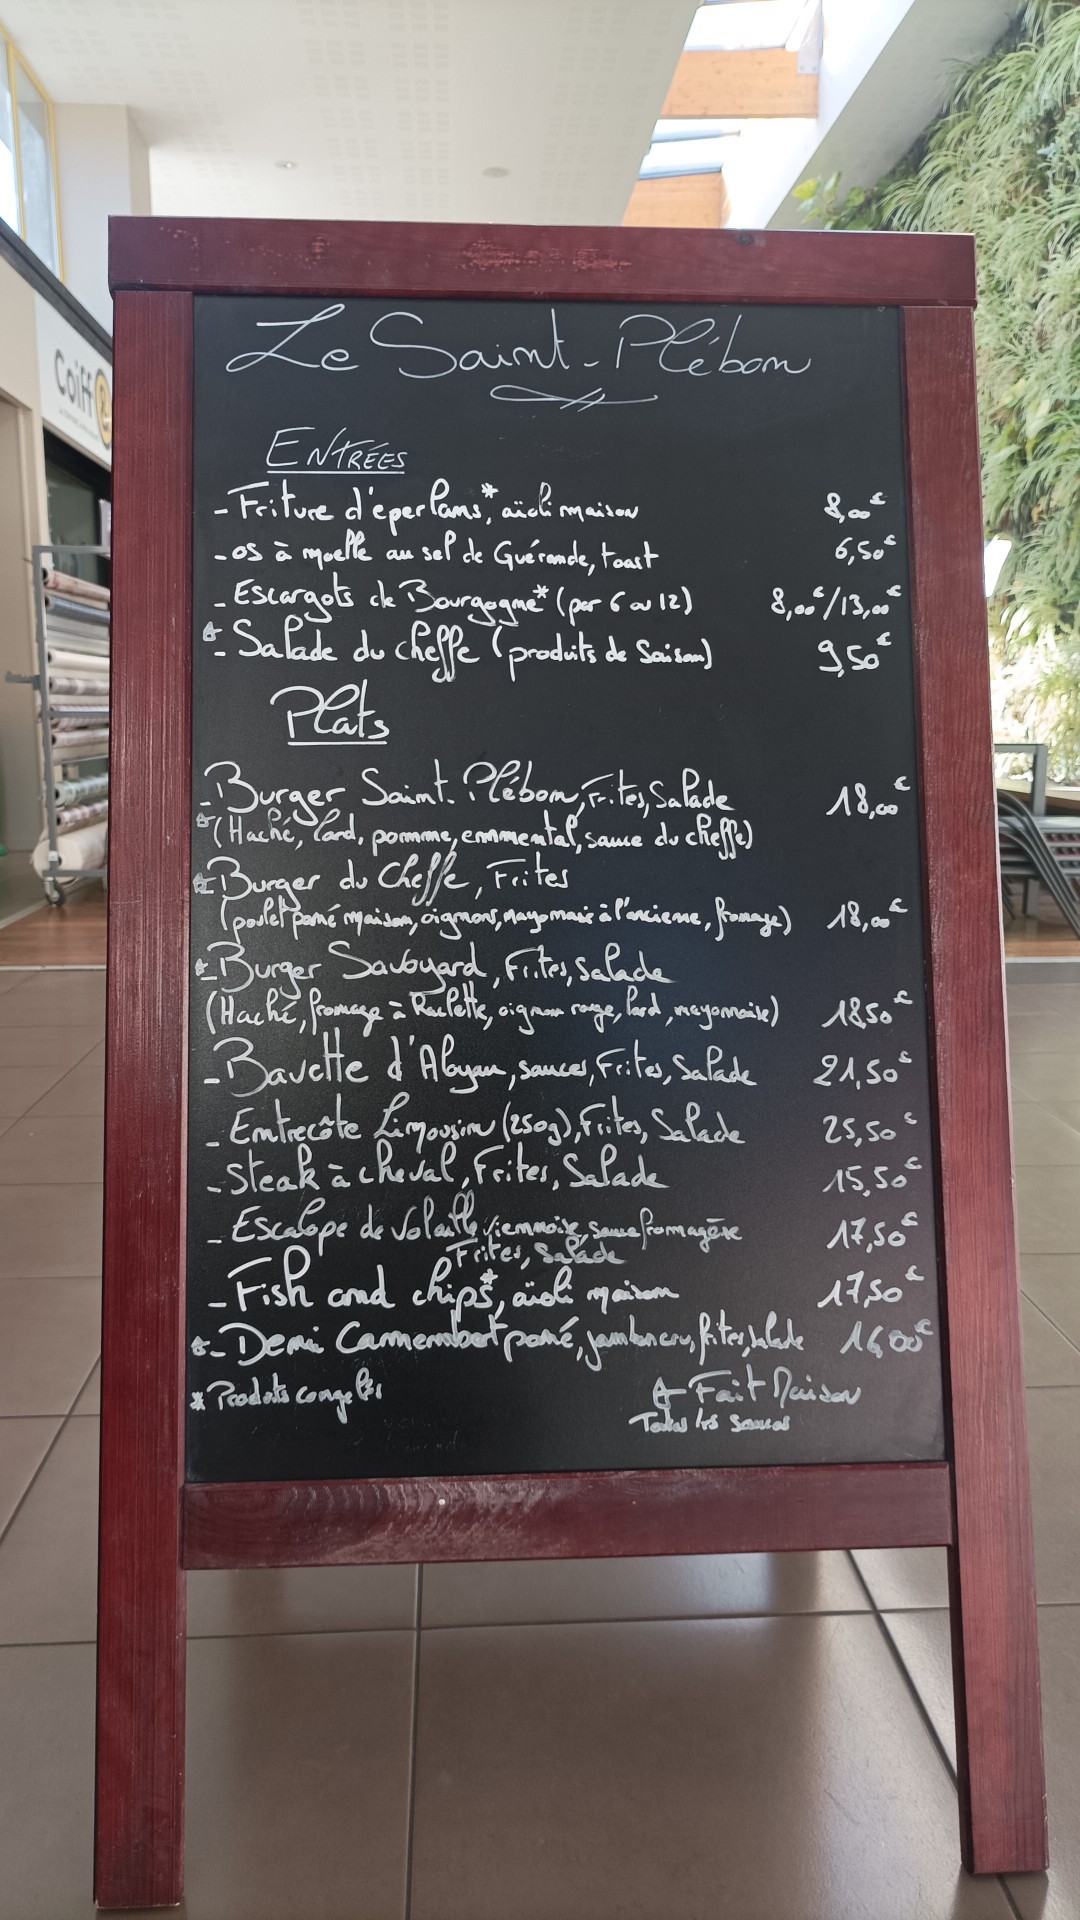 Coiff
Le Saint-Plébon
ENTRÉES
- Friture d'éperlans*, aïoli maison 8,00€
- os à moelle au sel de Guérande, toast 6,50€
- Escargots de Bourgogne* (par 6 ou 12) 8,00€/13,00€
- Salade du cheffe (produits de Saison) 9,50€
Plats
- Burger Saint-Plébon, Frites, Salade 18,00€
(Haché, lard, pomme, emmental, sauce du cheffe)
- Burger du Cheffe, Frites
(poulet pané maison, oignons, mayonnaise à l'ancienne, fromage) 18,00€
- Burger Savoyard, Frites, Salade
(Haché, fromage à Raclette, oignon rouge, lard, mayonnaise) 18,50€
- Bavette d'Aloyau, sauces, Frites, Salade 21,50€
- Entrecôte Limousin (250g), Frites, Salade 25,50€
- Steak à cheval, Frites, Salade 15,50€
- Escalope de volaille viennoise, sauce fromagère 17,50€
Frites, Salade
- Fish and chips*, aïoli maison 17,50€
- Demi Camembert pané, jambon cru, frites, salade 16,00€
* Produits congelés
Fait Maison
Toutes les sauces